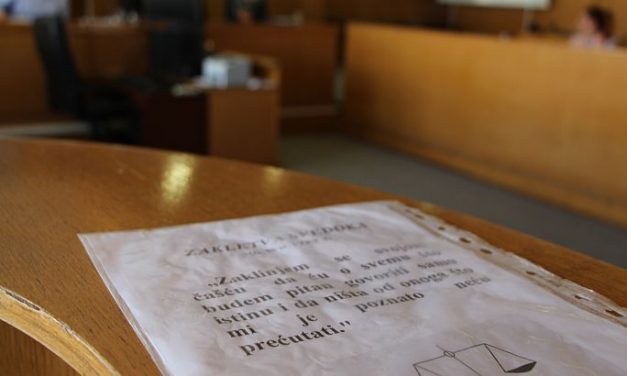 ZAKLETVA SVEDOKA
„Zaklinjem se svojom
čašću da ću o svemu što
budem pitan govoriti samo
istinu i da ništa od onoga što
mi je poznato neću
prećutati.”